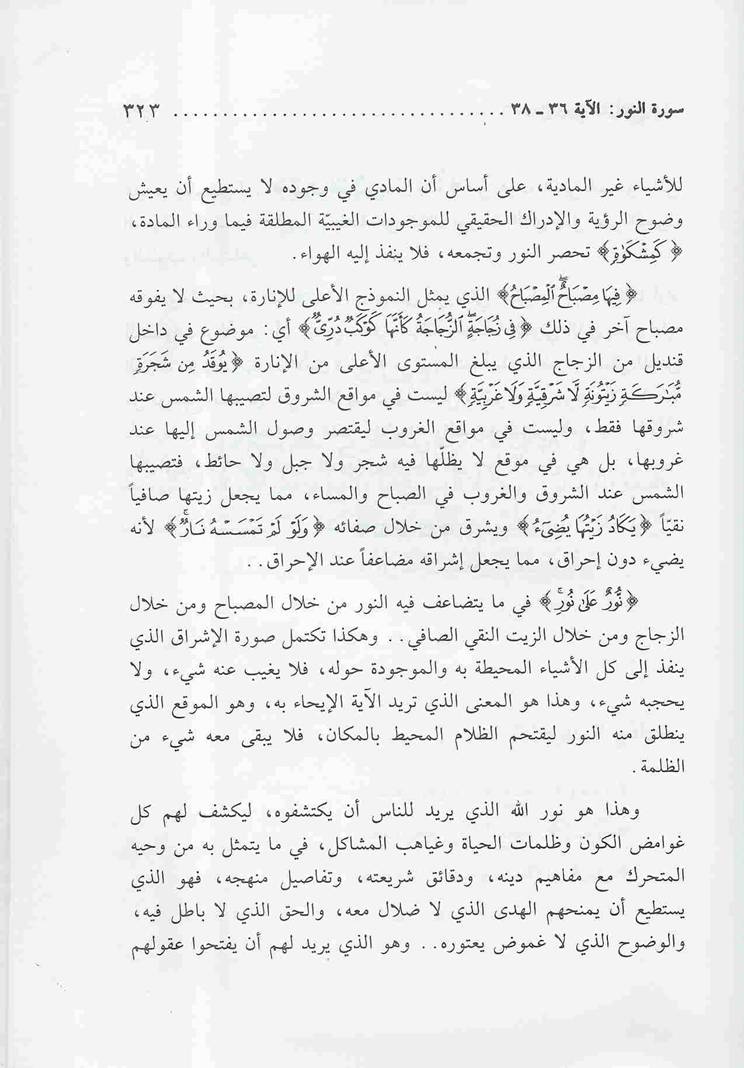 سورة النور: الآية ٣٦ ــ ٣٨ .................................. ٣٢٣
للأشياء غير المادية، على أساس أن المادي في وجوده لا يستطيع أن يعيش
وضوح الرؤية والإدراك الحقيقي للموجودات الغيبيّة المطلقة فيما وراء المادة،
﴿كَمِشْكَوٰةٍ﴾ تحصر النور وتجمعه، فلا ينفذ إليه الهواء.
﴿فِيهَا مِصْبَاحٌ ۖ ٱلْمِصْبَاحُ﴾ الذي يمثل النموذج الأعلى للإنارة، بحيث لا يفوقه
مصباح آخر في ذلك ﴿فِي زُجَاجَةٍ ۖ ٱلزُّجَاجَةُ كَأَنَّهَا كَوْكَبٌ دُرِّيٌّ﴾ أي: موضوع في داخل
قنديل من الزجاج الذي يبلغ المستوى الأعلى من الإنارة ﴿يُوقَدُ مِن شَجَرَةٍ
مُّبَٰرَكَةٍ زَيْتُونَةٍ لَّا شَرْقِيَّةٍ وَلَا غَرْبِيَّةٍ﴾ ليست في مواقع الشروق لتصيبها الشمس عند
شروقها فقط، وليست في مواقع الغروب ليقتصر وصول الشمس إليها عند
غروبها، بل هي في موقع لا يظلّها فيه شجر ولا جبل ولا حائط، فتصيبها
الشمس عند الشروق والغروب في الصباح والمساء، مما يجعل زيتها صافياً
نقيّاً ﴿يَكَادُ زَيْتُهَا يُضِيٓءُ﴾ ويشرق من خلال صفائه ﴿وَلَوْ لَمْ تَمْسَسْهُ نَارٌ ۚ﴾ لأنه
يضيء دون إحراق، مما يجعل إشراقه مضاعفاً عند الإحراق..
﴿نُّورٌ عَلَىٰ نُورٍ ۗ﴾ في ما يتضاعف فيه النور من خلال المصباح ومن خلال
الزجاج ومن خلال الزيت النقي الصافي.. وهكذا تكتمل صورة الإشراق الذي
ينفذ إلى كل الأشياء المحيطة به والموجودة حوله، فلا يغيب عنه شيء، ولا
يحجبه شيء، وهذا هو المعنى الذي تريد الآية الإيحاء به، وهو الموقع الذي
ينطلق منه النور ليقتحم الظلام المحيط بالمكان، فلا يبقى معه شيء من
الظلمة.
وهذا هو نور الله الذي يريد للناس أن يكتشفوه، ليكشف لهم كل
غوامض الكون وظلمات الحياة وغياهب المشاكل، في ما يتمثل به من وحيه
المتحرك مع مفاهيم دينه، ودقائق شريعته، وتفاصيل منهجه، فهو الذي
يستطيع أن يمنحهم الهدى الذي لا ضلال معه، والحق الذي لا باطل فيه،
والوضوح الذي لا غموض يعتوره.. وهو الذي يريد لهم أن يفتحوا عقولهم